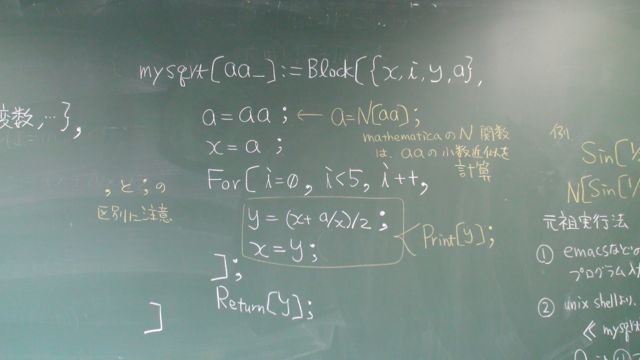 mysqrt[aa_]:=Block[{x,i,y,a},
変数,…},
a=aa; ← a=N[aa];
x=a;
mathematicaのN関数
は、aaの小数近似を
計算
For[i=0, i<5, i++,
,と;の
区別に注意
y=(x+a/x)/2;
x=y;
Print[y];
];
Return[y];
]
例
Sin[1/
N[Sin[1/
元祖実行法
① emacsなどの
プログラム入
② unix shellより、
≪ mysqrt